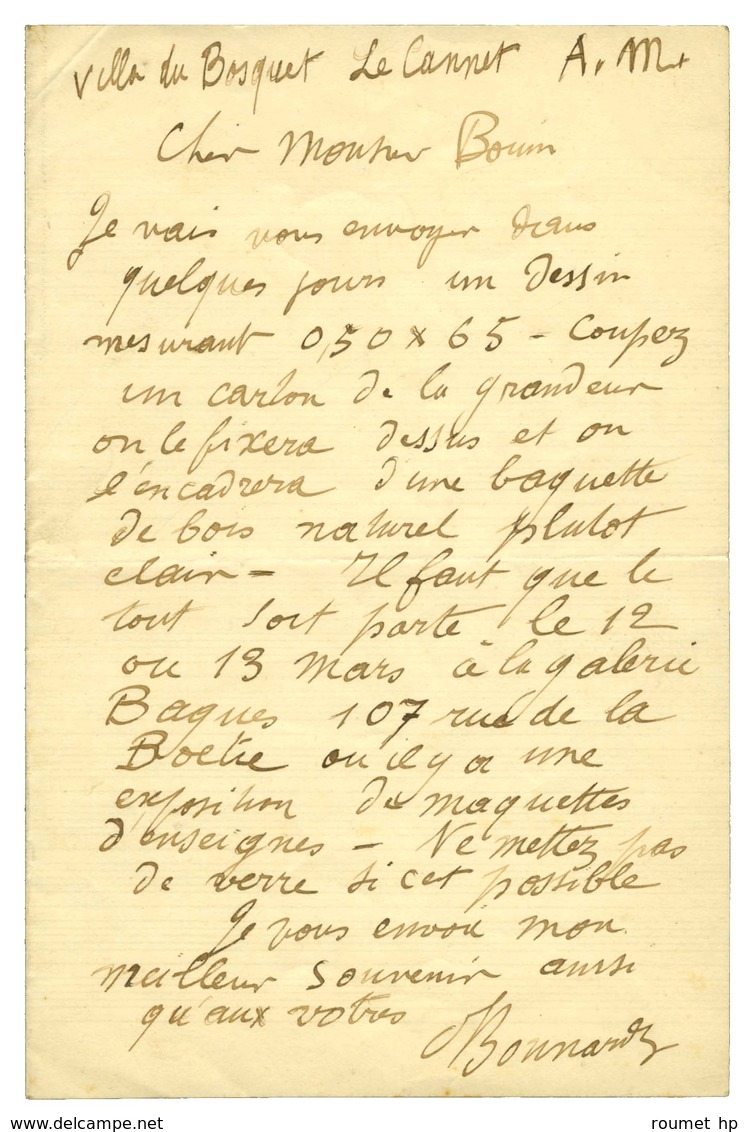 Villa du Bosquet Le Cannet A. M.
Cher Monsieur Bouin
Je vais vous envoyer dans
quelques jours un dessin
mesurant 0,50 x 65 - Coupez
un carton de la grandeur
on le fixera dessus et on
l'encadrera d'une baguette
de bois naturel plutot
clair - Il faut que le
tout soit porté le 12
ou 13 mars à la galerie
Bagues 107 rue de la
Boetie ou il y a une
exposition de maquettes
d'enseignes - Ne mettez pas
de verre si cet possible
Je vous envoie mon
meilleur souvenir aussi
qu'aux votres
Bonnard
roumet hp